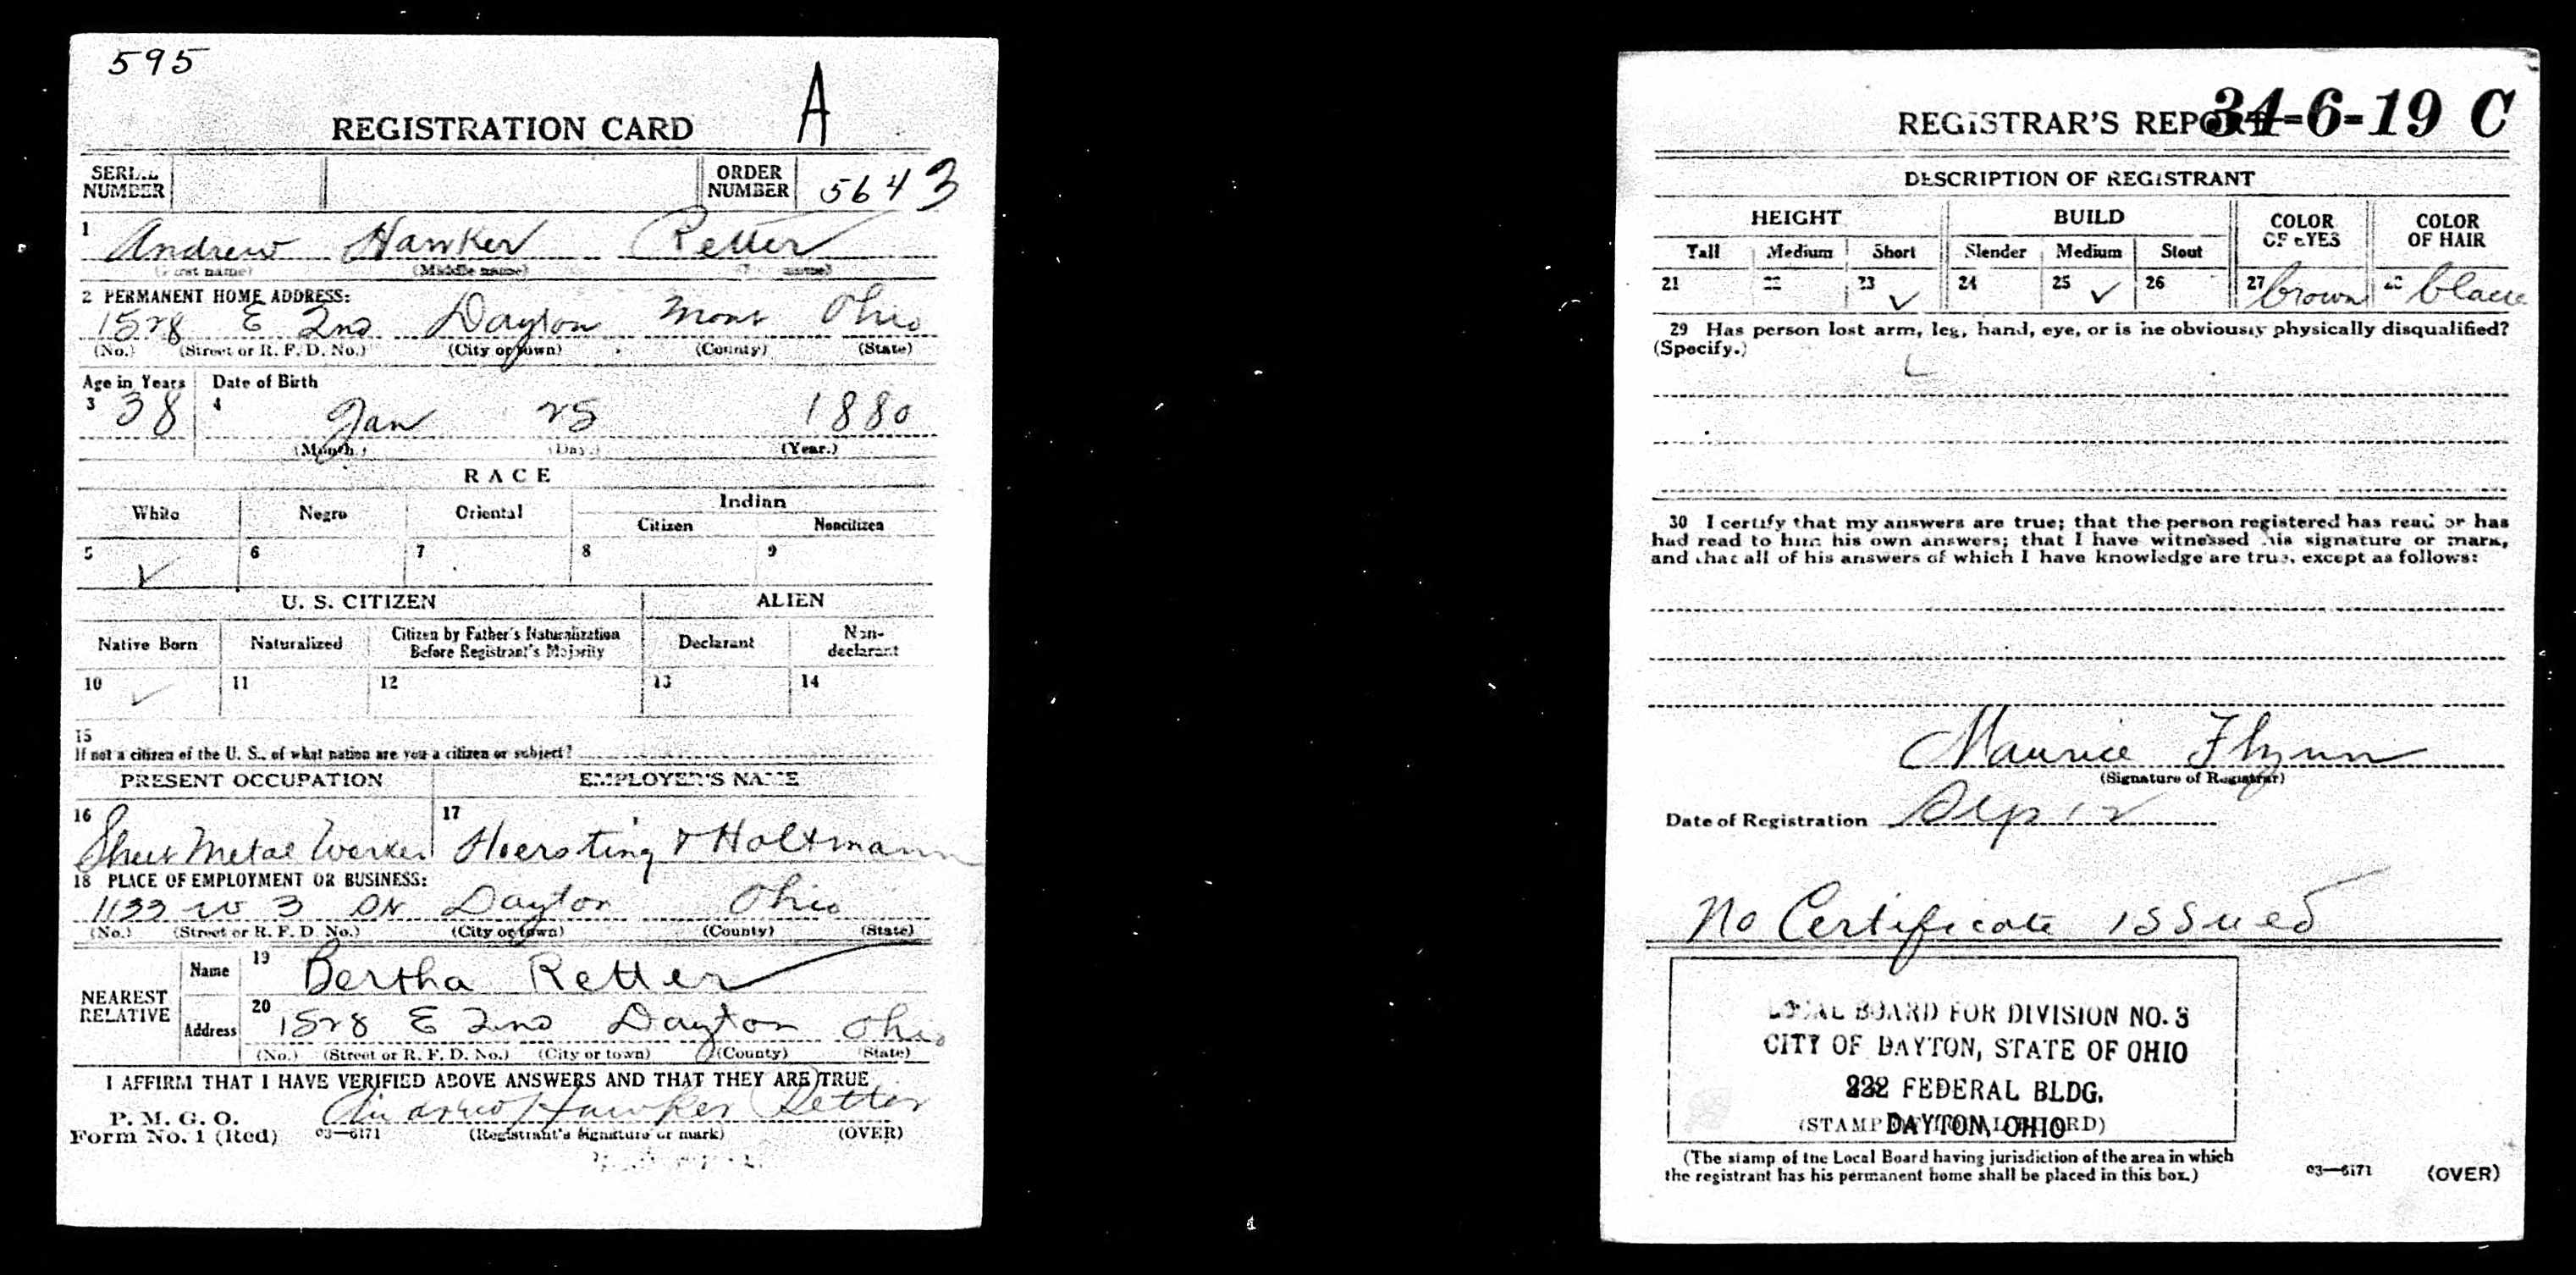 595
A
REGISTRATION CARD
SERIAL NUMBER
ORDER NUMBER 5643
1 Andrew Hawker Retter
(First name) (Middle name) (name)
2 PERMANENT HOME ADDRESS:
1528 E 2nd Dayton Mont Ohio
(No.) (Street or R. F. D. No.) (City or town) (County) (State)
Age in Years Date of Birth
3 38 4 Jan 25 1880
(Month.) (Day.) (Year.)
RACE
White Negro Oriental Indian
Citizen Noncitizen
5 ✓ 6 7 8 9
U. S. CITIZEN ALIEN
Native Born Naturalized Citizen by Father's Naturalization Before Registrant's Majority Declarant Non-declarant
10 ✓ 11 12 13 14
15
If not a citizen of the U. S., of what nation are you a citizen or subject?
PRESENT OCCUPATION EMPLOYER'S NAME
16 Sheet Metal Worker 17 Hoersting & Holtmann
18 PLACE OF EMPLOYMENT OR BUSINESS:
1133 W 3 Dayton Ohio
(No.) (Street or R. F. D. No.) (City or town) (County) (State)
NEAREST RELATIVE
Name 19 Bertha Retter
Address 20 1528 E 2nd Dayton Ohio
(No.) (Street or R. F. D. No.) (City or town) (County) (State)
I AFFIRM THAT I HAVE VERIFIED ABOVE ANSWERS AND THAT THEY ARE TRUE
P. M. G. O.
Form No. 1 (Red) 03—6171 Andrew Hawker Retter
(Registrant's signature or mark) (OVER)
REGISTRAR'S REPORT 34-6-19 C
DESCRIPTION OF REGISTRANT
HEIGHT BUILD COLOR OF EYES COLOR OF HAIR
Tall Medium Short Slender Medium Stout
21 22 23 ✓ 24 25 ✓ 26 27 brown 28 black
29 Has person lost arm, leg, hand, eye, or is he obviously physically disqualified?
(Specify.)
30 I certify that my answers are true; that the person registered has read or has
had read to him his own answers; that I have witnessed his signature or mark,
and that all of his answers of which I have knowledge are true, except as follows:
Maurice Flynn
(Signature of Registrar)
Date of Registration Sep 12
No Certificate issued
LOCAL BOARD FOR DIVISION NO. 3
CITY OF DAYTON, STATE OF OHIO
222 FEDERAL BLDG.
DAYTON, OHIO
(STAMP OF LOCAL BOARD)
(The stamp of the Local Board having jurisdiction of the area in which
the registrant has his permanent home shall be placed in this box.)
03—6171 (OVER)